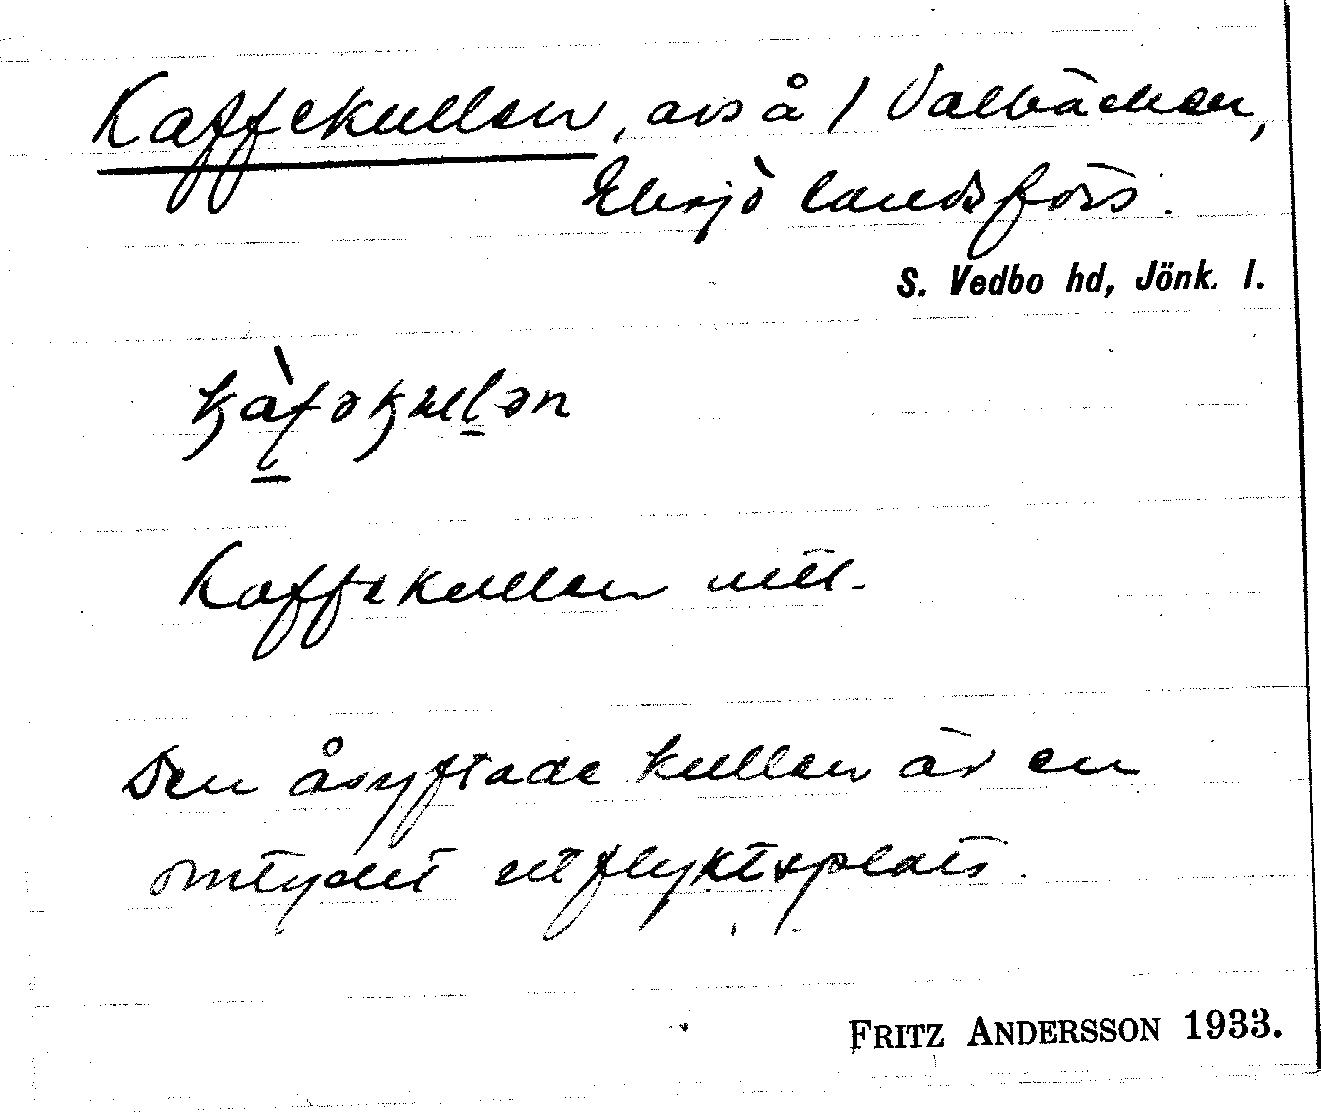 Kaffekullen, avs å 1 Valbäcken,
Eksjö landsförs.
S. Vedbo hd, Jönk. l.
kàfəkulən
Kaffekullen utt.
Den åsyftade kullen är en
omtyckt utflyktsplats.
FRITZ ANDERSSON 1933.